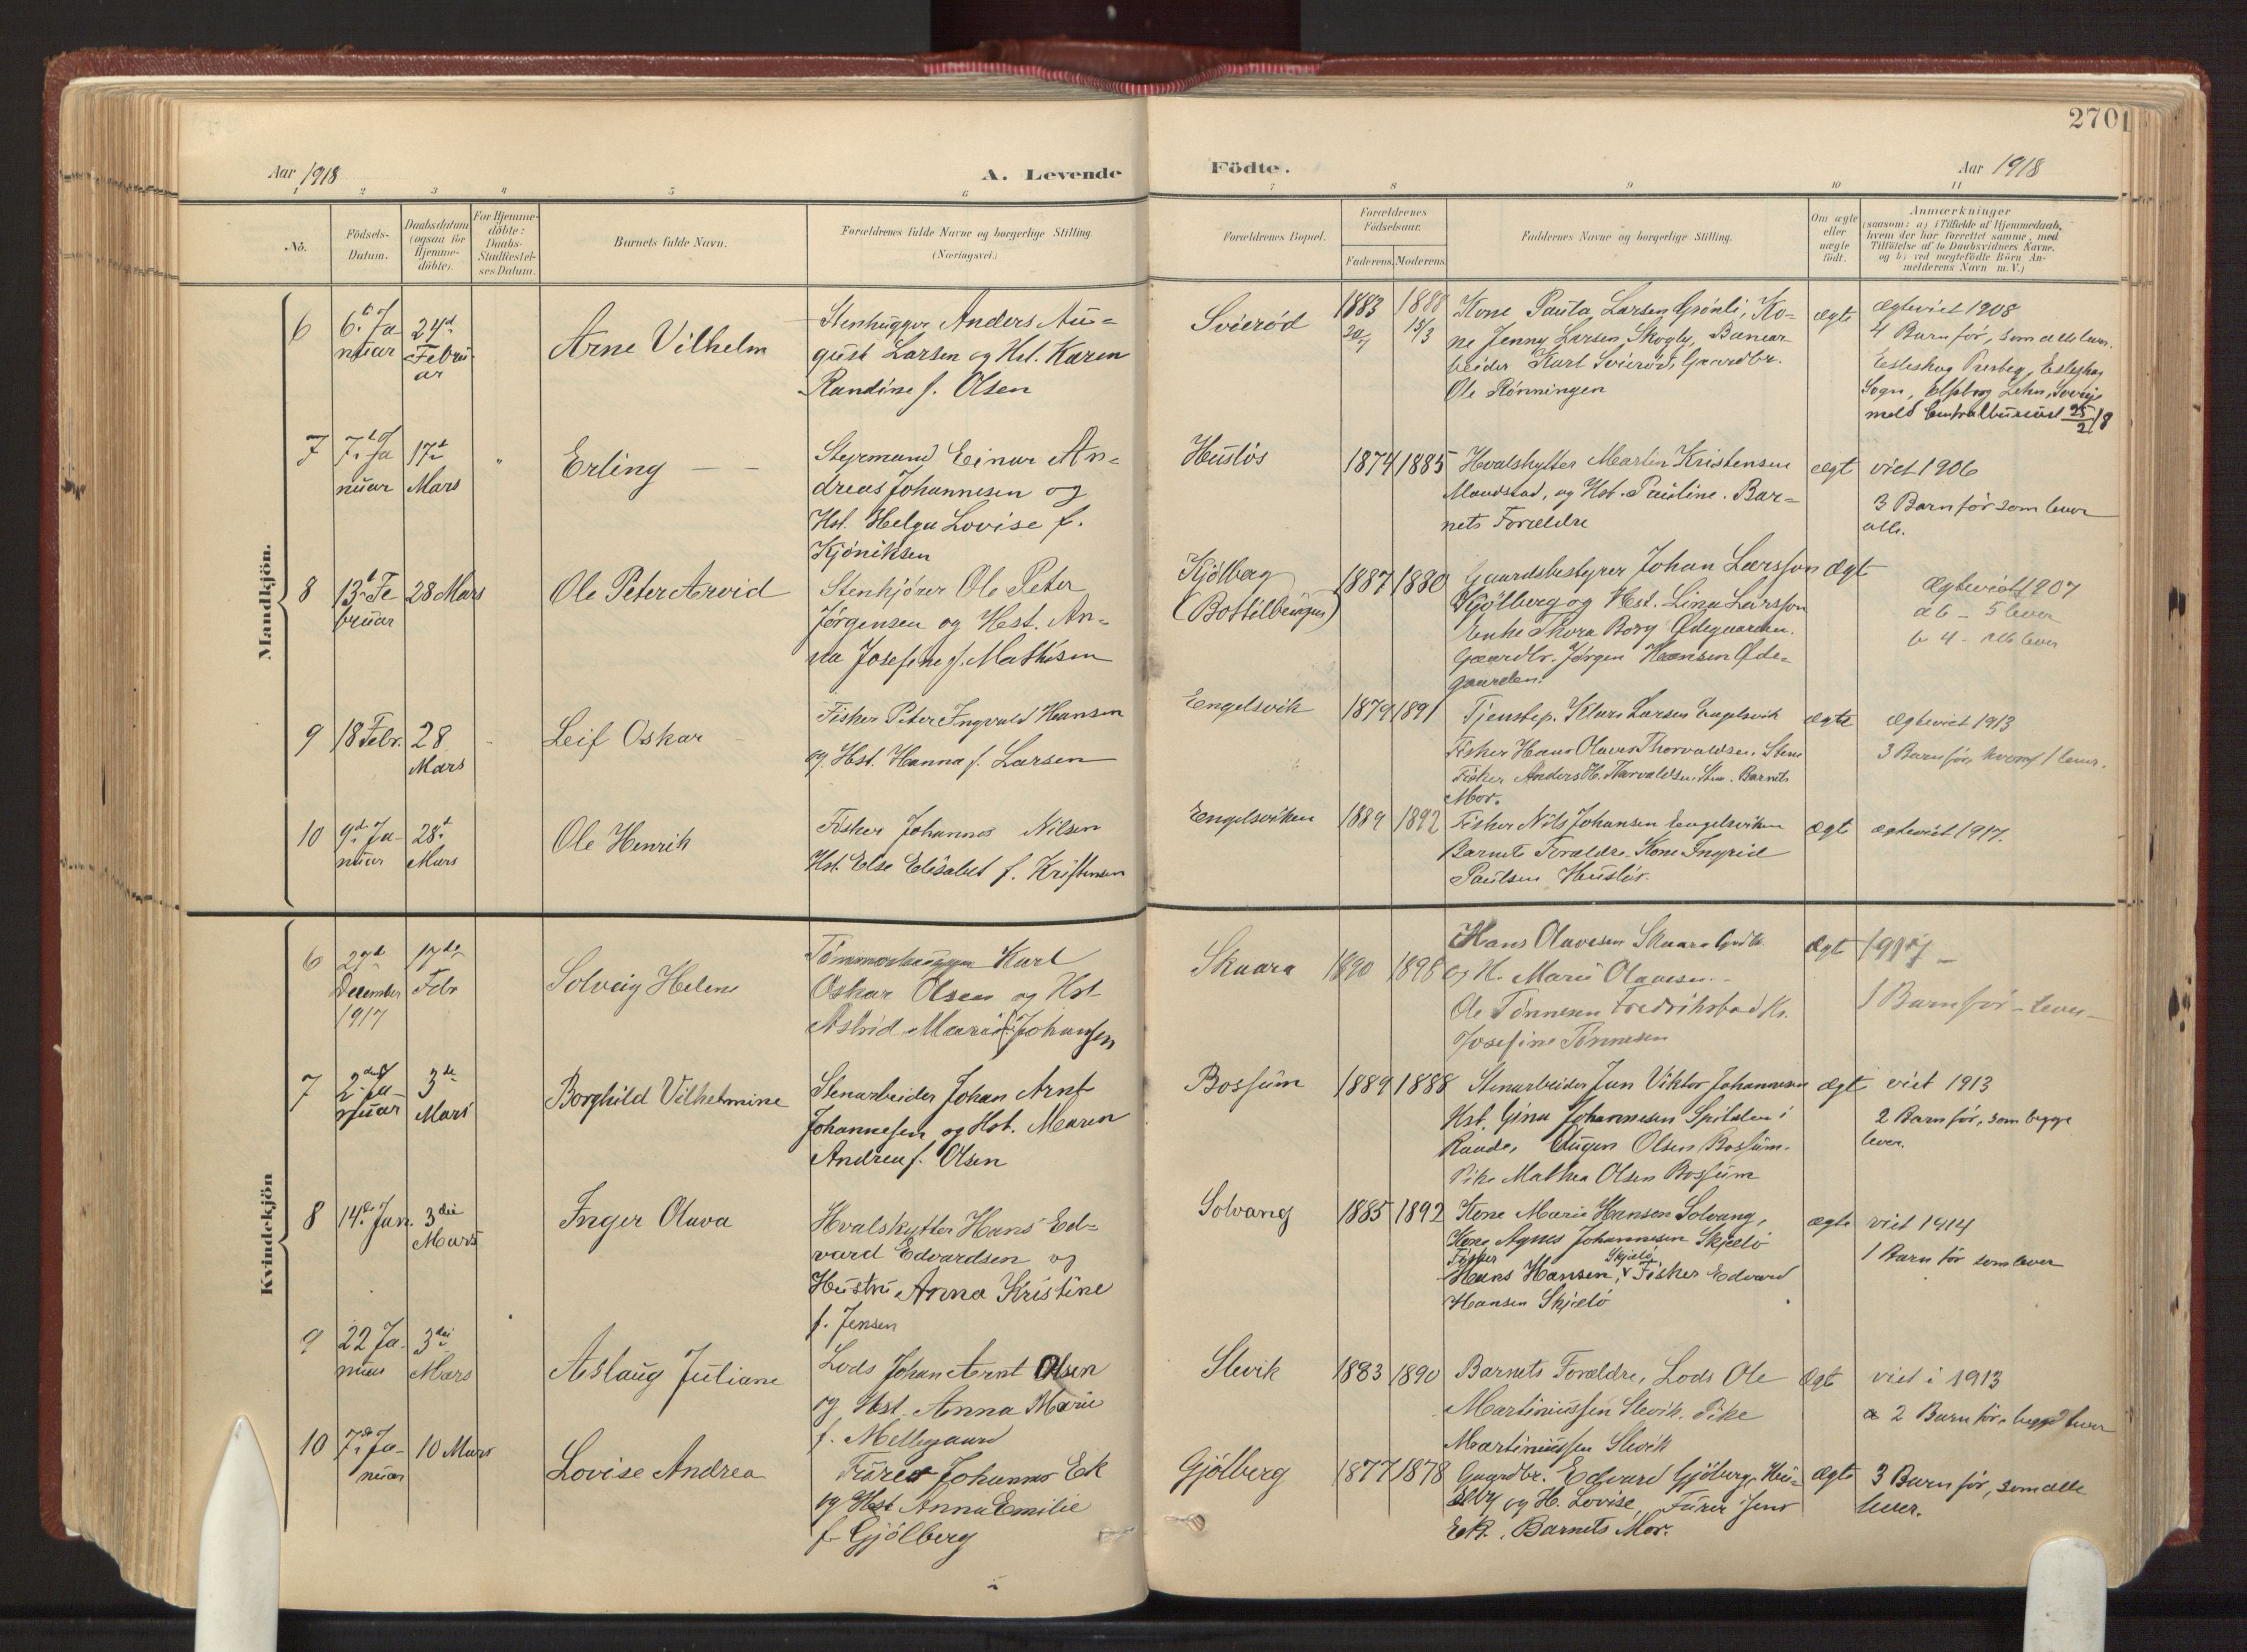 270
Aar 1918
A. Levende
Födte.
Aar 1918
1 2 3 4 5 6 7 8 9 10 11
No.
Födsels-
Datum.
Daabsdatum
(ogsaa for
Hjemme-
döbte).
For Hjemme-
döbte:
Daabs-
Stadfæstel-
ses Datum.
Barnets fulde Navn.
Forældrenes fulde Navne og borgerlige Stilling
(Næringsvei.)
Forældrenes Bopæl.
Forældrenes
Födselsaar.
Faderens. Moderens
Faddernes Navne og borgerlige Stilling.
Om ægte
eller
uægte
födt.
Anmærkninger
(saasom: a) i Tilfælde af Hjemmedaab,
hvem der har forrettet samme, med
Tilföielse af to Daabsvidners Navne.
og b) ved uægtefödte Börn An-
melderens Navn m. V.)
Mandkjön.
6
6. Ja-
nuar
24d
Febru-
ar
Arne Vilhelm
Stenhugger Anders Au-
gust Larsen og Hst. Karen
Randine f. Olsen
Svierød
1883
1888
15/3
Kone Paula Larsen Grønli, Ko-
ne Jenny Larsen, Skogly, Banear-
beider Karl Svierød, Gaardbr.
Ole Rønningen
ægte
Ægteviet 1908
4 Barn før, som alle lever.
Sogn, Elfsborg Lehn, Sverige
meld Centralbureau 25/2 18
7
7. Ja
nuar
17d
Mars
"
Erling — —
Styrmand Einar An-
dreas Johannesen og
Hst. Helga Lovise f.
Kjøniksen
Husløs
1874
1885
Hvalskytter Martin Kristensen
og Hst. Pauline. Bar-
nets Forældre
ægt
viet 1906
3 Barn før som lever
alle.
8
13d Fe
bruar
28 Mars
Ole Peter Arvid
Stenkjører Ole Peter
Jørgensen og Hst. An-
na Josefine f. Mathisen
Kjølberg
1887
1880
Gaardsbestyrer Johan Larsson
Kjølberg og Hst. Lina Larsson
Enke Thora Borg Ødegaarden.
Gaardbr. Jørgen Hansen Øde-
gaarden.
Ægt
Ægteviet 1907
a 6 - 5 lever
b 4 - alle lever
9
18 Febr.
28
Mars
Leif Oskar
Fisker Peter Ingvald Hansen
og Hst. Hanna f. Larsen
Engelsvik
1879
1891
Tjenstep. Klara Larsen Engelsvik
Fisker Hans Olaus Thorvaldsen, Stene
Fisker Anders H. Thorvaldsen Barnets
Mor.
ægte
Ægteviet 1913
3 Barn før, hvoraf 1 lever.
10
9d Ja-
nuar
28d
Mars
Ole Henrik
Fisker Johannes Nilsen
Hst. Else Elisabet f. Kristensen
Engelsviken
1889
1892
Fisker Nils Johansen Engelsviken
Barnets Forældre. Kone Ingrid
Paulsen Husløs.
ægte
ægteviet 1917.
Kvindekjön
6
29d
December
1917
17de
Febr
Solveig Helene
Tømmerhugger Karl
Oskar Olsen og Hst
Astrid Marie f. Johansen
Skaara
1890
1898
Hans Olavesen Skaara
og H. Marie Olavesen.
Ole Tønnesen Fredrikstad
Josefine Tønnesen
Ægte
1917 —
1 Barn før - lever -
7
2de Ja-
nuar
3de
Mars
Borghild Vilhelmine
Stenarbeider Johan Arnt
Johannesen og Hst. Maren
Andrea f. Olsen
Bossum
1889
1888
Stenarbeider Jan Viktor Johannesen
Hst. Gina Johannesen Spitalen i
Raade, Eugen Olsen Bossum.
Pike Mathea Olsen Bossum
Ægte
viet 1913
2 Barn før, som begge
lever.
8
14de Jan.
3die
Mars
Inger Olava
Hvalskytter Hans Ed-
vard Edvardsen og
Hustru Anna Kristine
f. Jensen
Solvang
1885
1892
Kone Marie Hansen Solvang,
Kone Agnes Johannesen Skjælø
Fisker Skjælø
Hans Hansen, v Fisker Edvard
Hansen Skjælø
ægte
viet 1914
1 Barn før som lever
9
22 Ja-
nuar
3die
Mars
Aslaug Juliane
Lods Johan Arnt Olsen
og Hst. Anna Marie
f. Mellegaard
Slevik
1883
1890
Barnets Forældre, Lods Ole
Martiniussen Slevik. Pike
Martiniussen Slevik
Ægte
viet i 1913
a 2 Barn før, begge lever
10
7de Ja-
nuar
10 Mars
Lovise Andrea
Furer Johannes Ek
og Hst Anna Emilie
f. Gjølberg
Gjølberg
1877
1878
Gaardbr. Edvard Gjølberg, Hu-
seby og H. Lovise, Furer Jens
Ek. Barnets Mor.
Ægte
3 Barn før, som alle
lever.